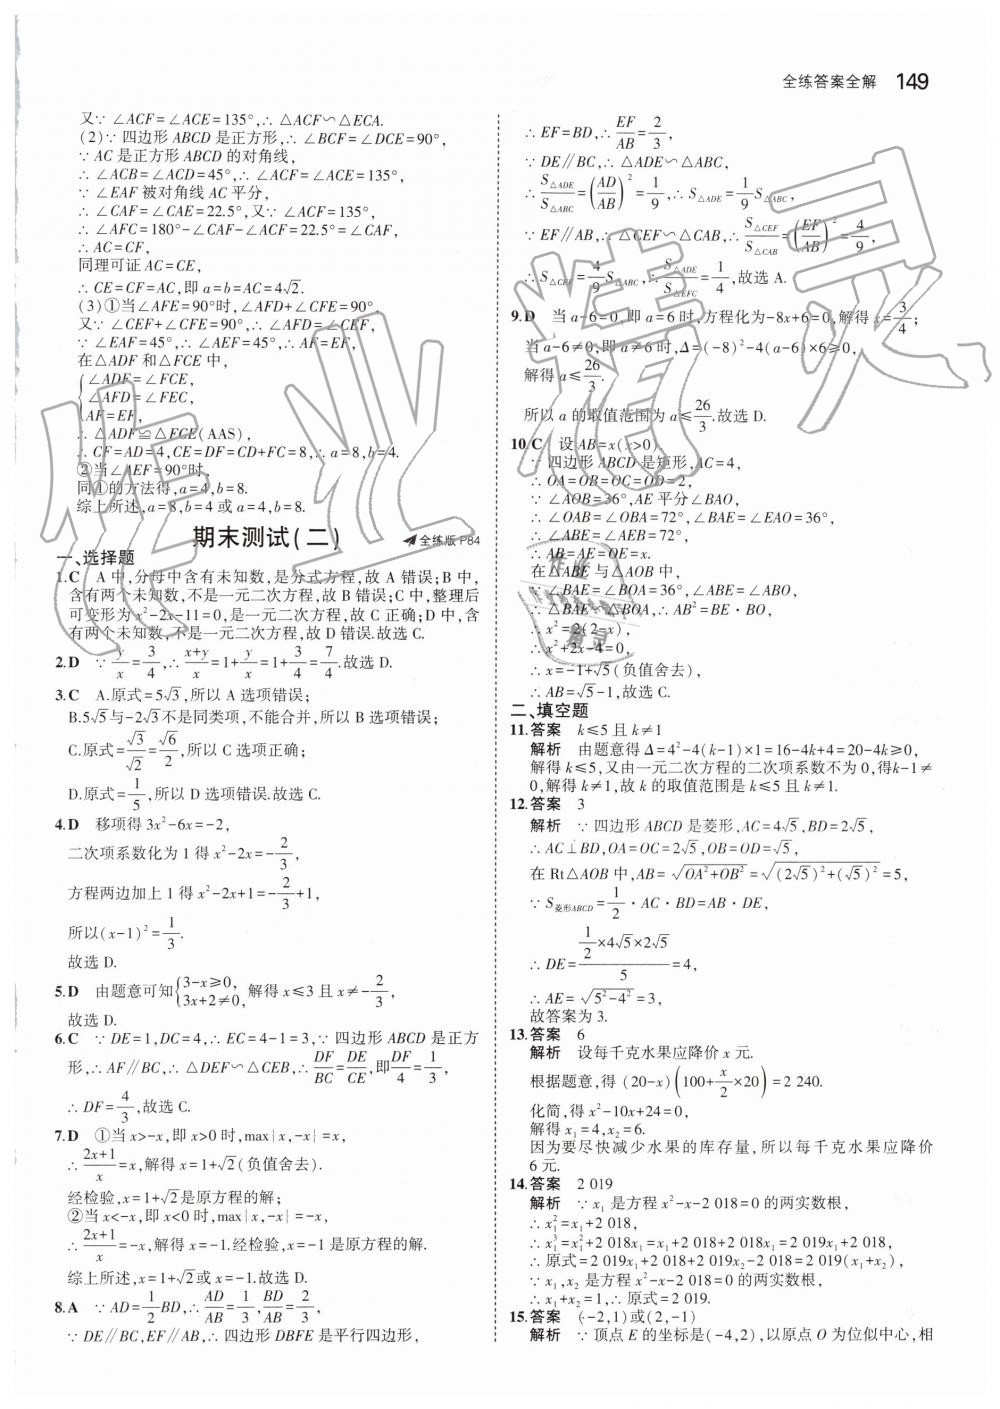 全练答案全解 149
又∵ ∠ACF=∠ACE=135°,∴ △ACF∽△ECA.
(2)∵ 四边形 ABCD 是正方形,∴ ∠BCF=∠DCE=90°,
∵ AC 是正方形 ABCD 的对角线,
∴ ∠ACB=∠ACD=45°,∴ ∠ACF=∠ACE=135°,
∵ ∠EAF 被对角线 AC 平分,
∴ ∠CAF=∠CAE=22.5°,又∵ ∠ACF=135°,
∴ ∠AFC=180°-∠CAF-∠ACF=22.5°=∠CAF,
∴ AC=CF,
同理可证 AC=CE,
∴ CE=CF=AC,即 a=b=AC=4√2.
(3)①当∠AFE=90°时,∠AFD+∠CFE=90°
又∵ ∠CEF+∠CFE=90°,∴ ∠AFD=∠CEF,
∵ ∠EAF=45°,∴ ∠AEF=45°,∴ AF=EF,
在△ADF 和△FCE 中,
∠ADF=∠FCE,
∠AFD=∠FEC,
AF=EF,
∴ △ADF≌△FCE(AAS),
∴ CF=AD=4,CE=DF=CD+FC=8,∴ a=8,b=4.
②当∠AEF=90°时,
同①的方法得,a=4,b=8.
综上所述,a=8,b=4 或 a=4,b=8.
期末测试(二) 全练版 P84
一、选择题
1.C A 中,分母中含有未知数,是分式方程,故 A 错误;B 中,
含有两个未知数,不是一元二次方程,故 B 错误;C 中,整理后
可变形为 x²-2x-11=0,是一元二次方程,故 C 正确;D 中,含
有两个未知数,不是一元二次方程,故 D 错误.故选 C.
2.D ∵ y/x=3/4,∴ (x+y)/x=1+y/x=1+3/4=7/4.故选 D.
3.C A.原式=5√3,所以 A 选项错误;
B.5√5与-2√3不是同类项,不能合并,所以 B 选项错误;
C.原式=√3/√2=√6/2,所以 C 选项正确;
D.原式=1/5,所以 D 选项错误.故选 C.
4.D 移项得 3x²-6x=-2,
二次项系数化为 1 得 x²-2x=-2/3,
方程两边加上 1 得 x²-2x+1=-2/3+1,
所以(x-1)²=1/3.
故选 D.
5.D 由题意可知{3-x≥0, 3x+2≠0,解得 x≤3 且 x≠-2/3,
故选 D.
6.C ∵ DE=1,DC=4,∴ EC=4-1=3,∵ 四边形 ABCD 是正方
形,∴ AF∥BC,∴ △DEF∽△CEB,∴ DF/BC=DE/CE,即DF/4=1/3,
∴ DF=4/3,故选 C.
7.D ①当 x>-x,即 x>0 时,max|x,-x|=x,
∴ (2x+1)/x=x,解得 x=1+√2(负值舍去).
经检验,x=1+√2是原方程的解;
②当 x<-x,即 x<0 时,max|x,-x|=-x,
∴ (2x+1)/x=-x,解得 x=-1.经检验,x=-1 是原方程的解.
综上所述,x=1+√2或 x=-1.故选 D.
8.A ∵ AD=1/2BD,∴ AD/AB=1/3,BD/AB=2/3,
∵ DE∥BC,EF∥AB,∴ 四边形 DBFE 是平行四边形,
∴ EF=BD,∴ EF/AB=2/3,
∵ DE∥BC,∴ △ADE∽△ABC,
∴ S△ADE/S△ABC=(AD/AB)²=1/9,∴ S△ADE=1/9S△ABC,
∵ EF∥AB,∴ △CEF∽△CAB,∴ S△CEF/S△CAB=(EF/AB)²=4/9,
∴ S△CEF=4/9S△ABC,∴ S△ADE/S△EFC=1/4,故选 A.
9.D 当 a-6=0,即 a=6 时,方程化为-8x+6=0,解得 x=3/4;
当 a-6≠0,即 a≠6 时,Δ=(-8)²-4(a-6)×6≥0,
解得 a≤26/3.
所以 a 的取值范围为 a≤26/3.故选 D.
10.C 设 AB=x(x>0).
∵ 四边形 ABCD 是矩形,AC=4,
∴ OA=OB=OC=OD=2,
∵ ∠AOB=36°,AE 平分∠BAO,
∴ ∠OAB=∠OBA=72°,∠BAE=∠EAO=36°,
∴ ∠ABE=∠AEB=72°,
∴ AB=AE=OE=x.
在△ABE 与△AOB 中,
∵ ∠BAE=∠BOA=36°,∠ABE=∠ABO,
∴ △BAE∽△BOA,∴ AB²=BE·BO,
∴ x²=2(2-x),
∴ x²+2x-4=0,
∴ x=-1+√5(负值舍去),
∴ AB=√5-1,故选 C.
二、填空题
11.答案 k≤5 且 k≠1
解析 由题意得 Δ=4²-4(k-1)×1=16-4k+4=20-4k≥0,
解得 k≤5,又由一元二次方程的二次项系数不为 0,得k-1≠
0,解得 k≠1,故 k 的取值范围是 k≤5 且 k≠1.
12.答案 3
解析 ∵ 四边形 ABCD 是菱形,AC=4√5,BD=2√5,
∴ AC⊥BD,OA=OC=2√5,OB=OD=√5,
在 Rt△AOB 中,AB=√(OA²+OB²)=√((2√5)²+(√5)²)=5,
∵ S菱形ABCD=1/2·AC·BD=AB·DE,
∴ DE=(1/2×4√5×2√5)/5=4,
∴ AE=√(5²-4²)=3,
故答案为 3.
13.答案 6
解析 设每千克水果应降价 x 元.
根据题意,得 (20-x)(100+x/2×20)=2 240.
化简,得 x²-10x+24=0,
解得 x₁=4,x₂=6.
因为要尽快减少水果的库存量,所以每千克水果应降价
6 元.
14.答案 2 019
解析 ∵ x₁ 是方程 x²-x-2 018=0 的两实数根,
∴ x₁²=x₁+2 018,
∴ x₁³=x₁²+2 018x₁=x₁+2 018+2 018x₁=2 019x₁+2 018,
∴ 原式=2 019x₁+2 018+2 019x₂-2 018=2 019(x₁+x₂),
∵ x₁,x₂ 是方程 x²-x-2 018=0 的两实数根,
∴ x₁+x₂=1,∴ 原式=2 019.
15.答案 (-2,1)或(2,-1)
解析 ∵ 顶点 E 的坐标是(-4,2),以原点 O 为位似中心,相
作业精灵